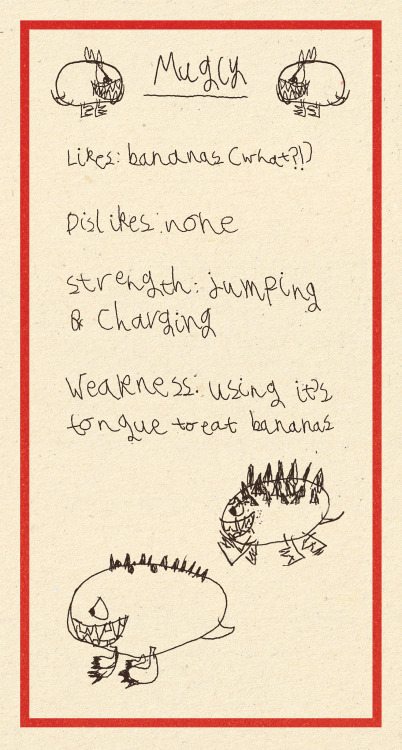 Mugly
Likes: bananas (what?!)
Dislikes: none
strength: jumping
& Charging
Weakness: using it's
tongue to eat bananas